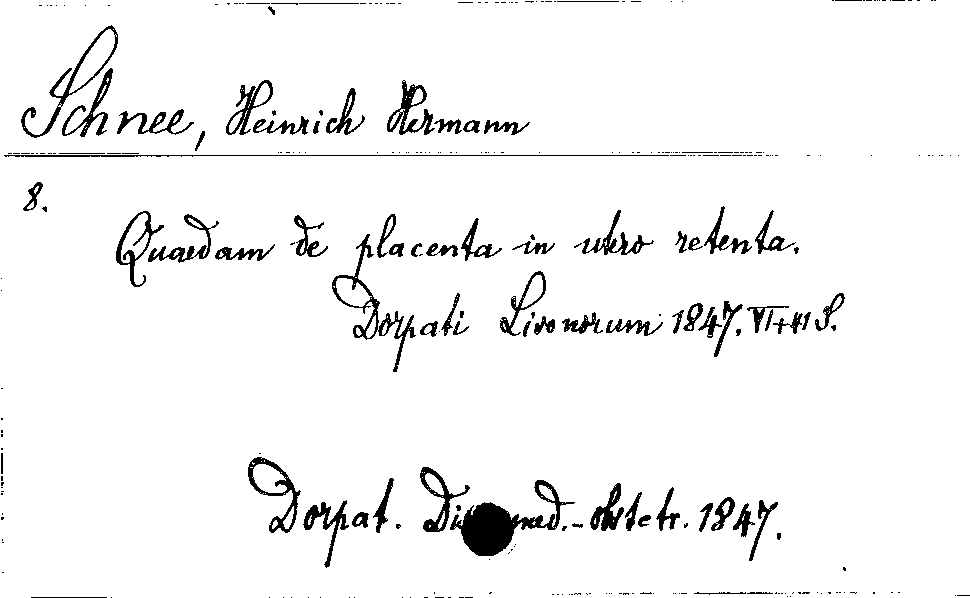 Schnee, Heinrich Hermann
8.
Quaedam de placenta in utero retenta.
Dorpati Livonorum 1847. VI + 41 S.
Dorpat. med.-obstetr. 1847.